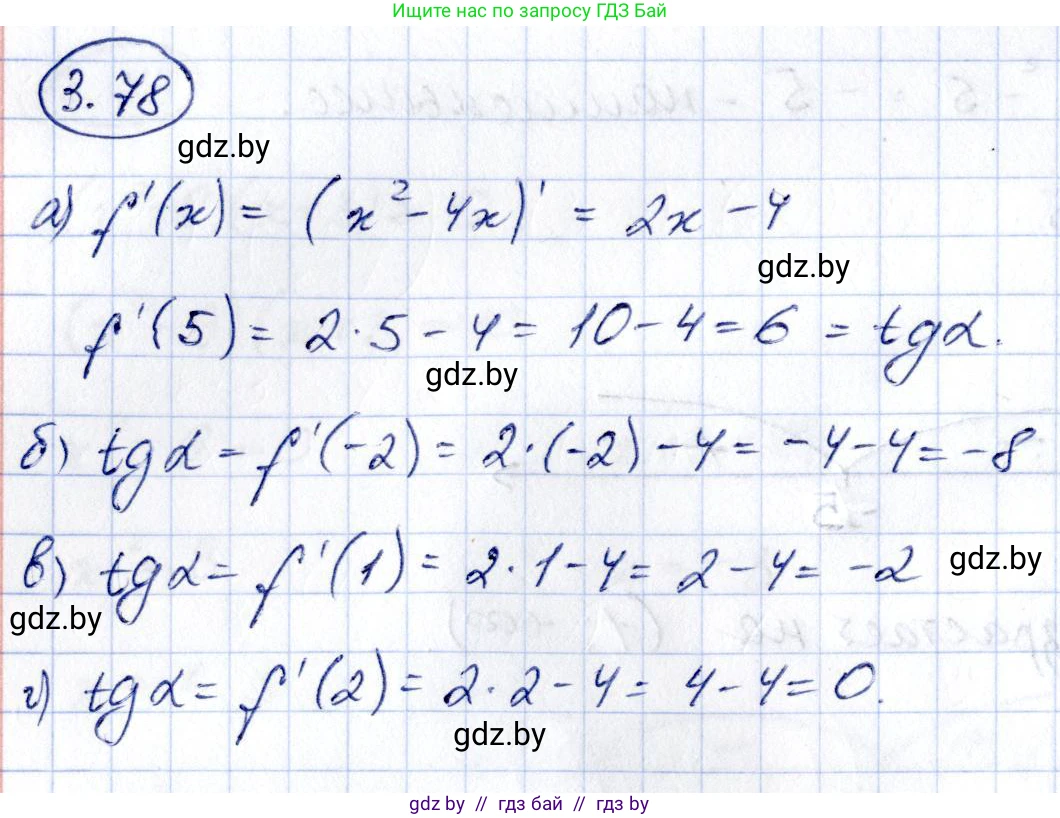 Ищите нас по запросу ГДЗ Бай
3.78
gdz.by
а) f'(x) = (x² - 4x)' = 2x - 4
gdz.by
f'(5) = 2·5 - 4 = 10 - 4 = 6 = tgα.
gdz.by
б) tgα = f'(-2) = 2·(-2) - 4 = -4 - 4 = -8
в) tgα = f'(1) = 2·1 - 4 = 2 - 4 = -2
gdz.by
gdz.by
г) tgα = f'(2) = 2·2 - 4 = 4 - 4 = 0.
gdz.by
gdz.by // гдз бай // гдз by